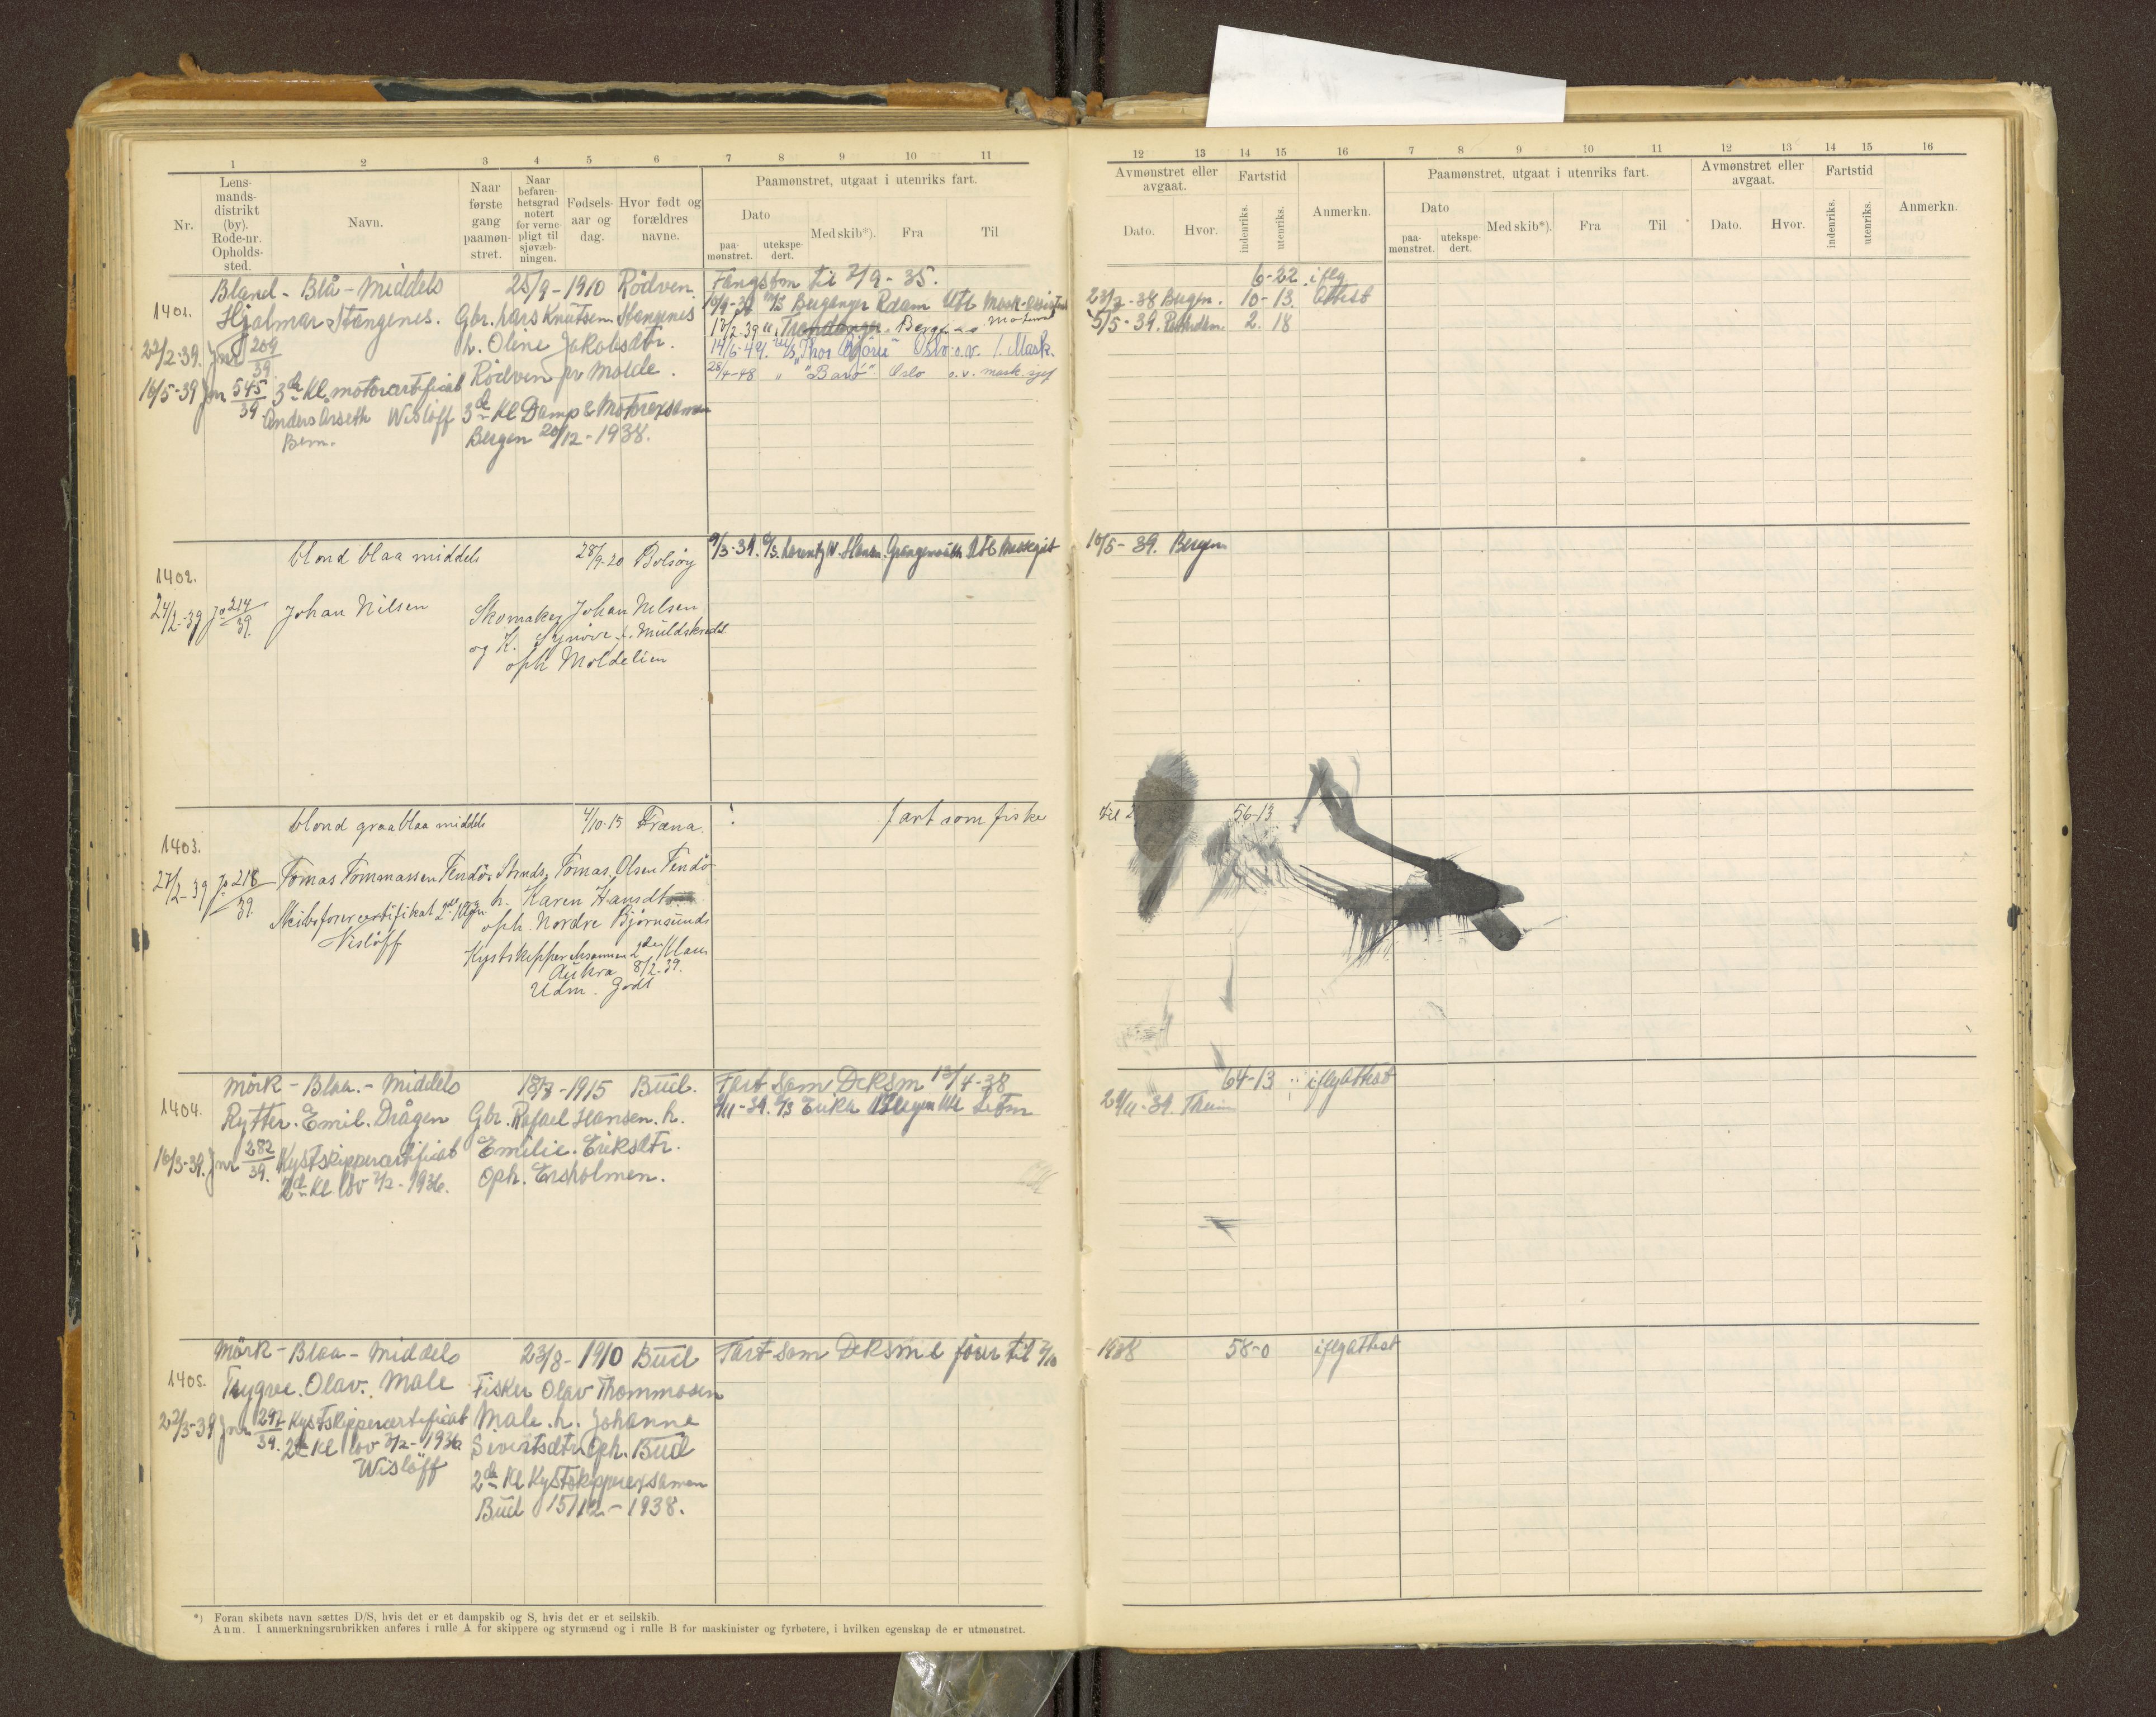 1 2 3 4 5 6 7 8 9 10 11
Nr. Lensmandsdistrikt (by). Rode-nr. Opholdssted. Navn. Naar første gang paamønstret. Naar befarenhetsgrad notert for vernepligt til sjøvæbningen. Fødselsaar og dag. Hvor født og forældres navne. Paamønstret, utgaat i utenriks fart.
Dato
paamønstret. utekspedert. Med skib*). Fra Til
12 13 14 15 16 7 8 9 10 11 12 13 14 15 16
Avmønstret eller avgaat. Fartstid Anmerkn. Paamønstret, utgaat i utenriks fart. Avmønstret eller avgaat. Fartstid Anmerkn.
Dato. Hvor. indenriks. utenriks. Dato paamønstret. utekspedert. Med skib*). Fra Til Dato. Hvor. indenriks. utenriks.
Bland - Blå - Middels 25/9 - 1910 Rödven Fangstm til 7/9 - 35. 6-22 iflg
1401. Hjalmar Stangenes. Gbr. Lars Knutsen Stangenes 10-13. Attest
23/7-38 Bergen.
13/2-39 Bergen
5/5-39. 2. 18
22/2-39. Jnr 209/39 h. Oline Jakobsdtr. 14/6-49. "Thor Björn" Oslo o.v. 1. Mask.
Rödven pr Molde. 28/4-48 " "Barö" Oslo o.v. mask.
16/5-39 Jnr 545/39 3de Kl. motorcertificat
Anders Orseth Wislöff 3de Kl Damp & Motorexamen
Bem. Bergen 20/12-1938.
1402. blond blaa middels 28/9-20 Bolsöy 9/3-39. Lorentz W. Hansen. Grangemouth 10/5-39. Bergen
24/2-39 Jo 214/39. Johan Nilsen Skomaker Johan Nilsen
og h. Synöve f. Muldskred
oph Moldelien
1403. blond graablaa middels 4/10-15 Fræna. fart som fisker til 2 56-13
27/2-39 Jo 218/39. Tomas Tommassen Tendö Strands. Tomas Olsen Tendö
h. Karen Hansdtr
Skibsförercertifikat oph. Nordre Björnsund
Wislöff Kystskippereksamen 2den Klasse
Aukra 8/2-39.
Udm. Godt
1404. Mörk - Blaa - Middels 18/7-1915 Bud. Fart som Deksm 13/4-38 64-13 iflg Attest
Rytter. Emil. Drågen Gbr. Rafael Hansen. h. Erika Bergen 29/11-39. Thjem
16/3-39. Jnr 282/39. Kystskippercertificat Emilie. Eriksdtr.
2de Kl lov 7/2-1936. Oph. Ersholmen.
1405. Mörk - Blaa - Middels 23/8-1910 Bud Fart som Deksm & förer til 7/10 - 1938 58-0 iflg attest
Trygve. Olav. Male Fisker Olav Thommasen
22/3-39 Jnr. 297/39. Kystskippercertificat Male. h. Johanne
2de Kl lov 7/2-1936 Sivertsdtr Oph. Bud
Wislöff 2de Kl Kystskipperexamen
Bud 15/12-1938.
*) Foran skibets navn sættes D/S, hvis det er et dampskib og S, hvis det er et seilskib.
Anm. I anmerkningsrubrikken anføres i rulle A for skippere og styrmænd og i rulle B for maskinister og fyrbøtere, i hvilken egenskap de er utmønstret.